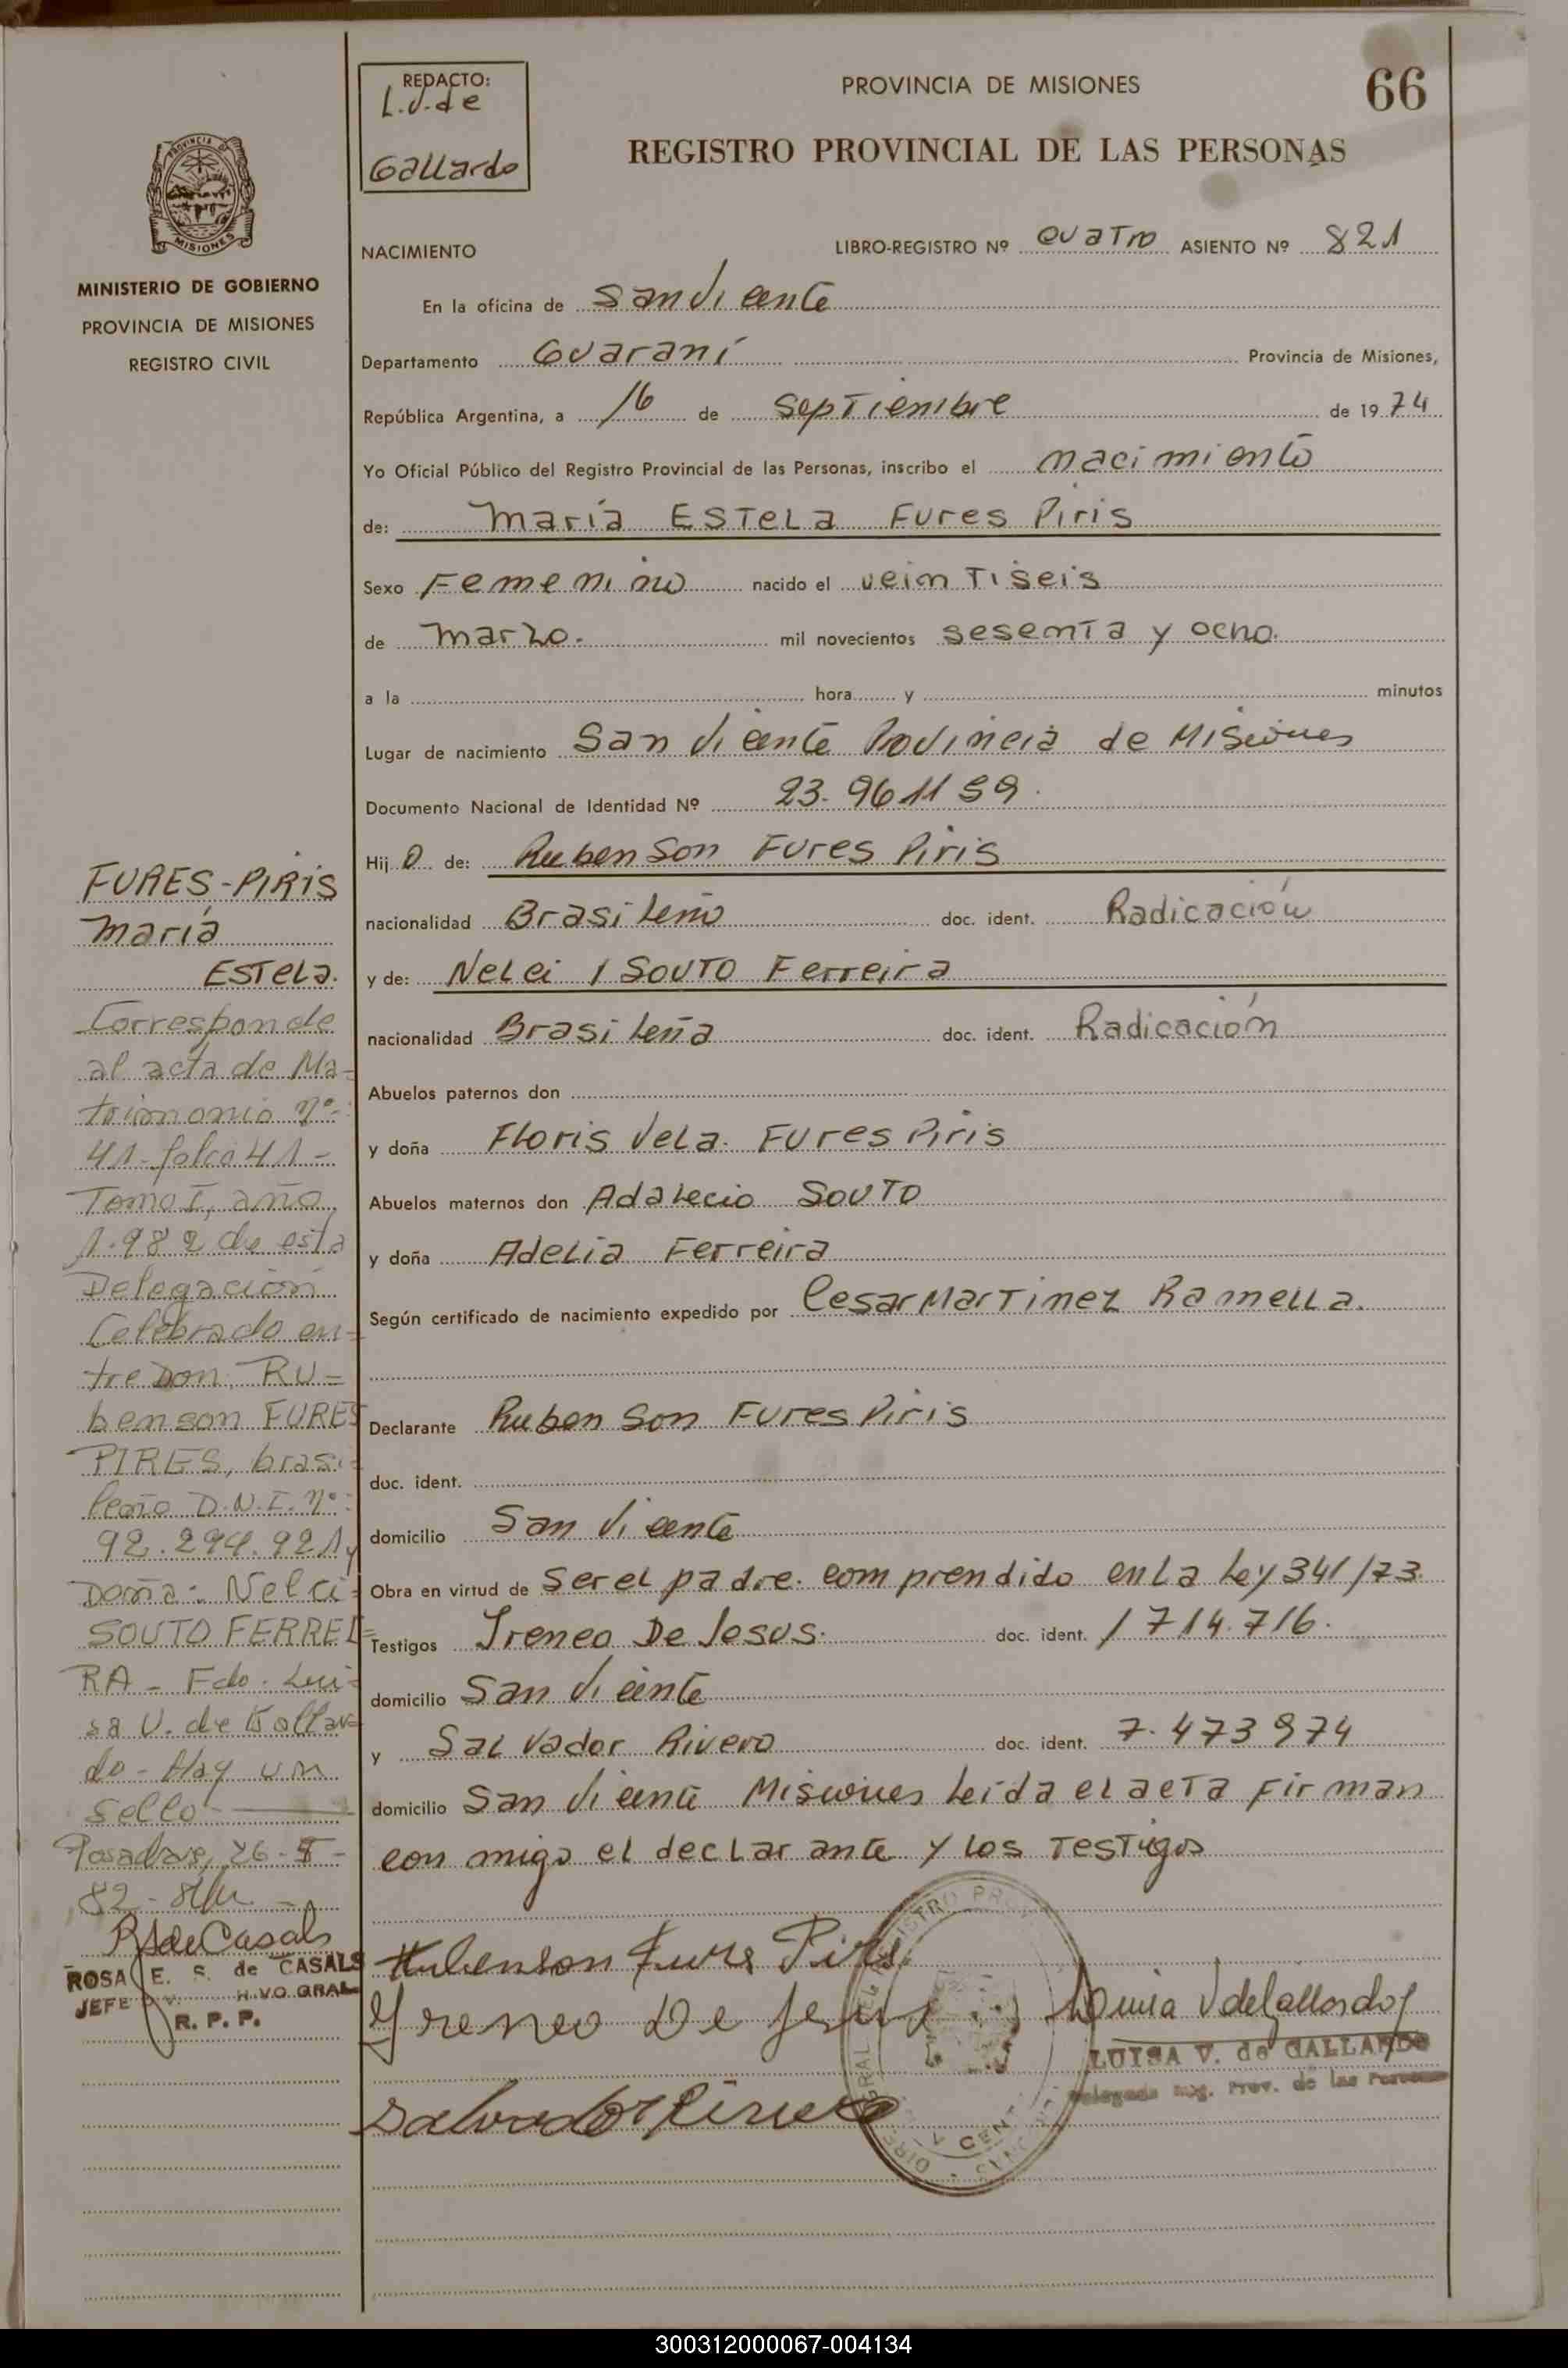 REDACTO:
L.V. de
Gallardo
PROVINCIA DE MISIONES
66
REGISTRO PROVINCIAL DE LAS PERSONAS
PROVINCIA
MISIONES
MINISTERIO DE GOBIERNO
PROVINCIA DE MISIONES
REGISTRO CIVIL
NACIMIENTO
LIBRO-REGISTRO Nº cuatro ASIENTO Nº 821
En la oficina de San Vicente
Departamento Guaraní Provincia de Misiones,
República Argentina, a 16 de septiembre de 1974
Yo Oficial Público del Registro Provincial de las Personas, inscribo el nacimiento
de: María Estela Fures Piris
Sexo Femenino nacido el veintiseis
de marzo. mil novecientos sesenta y ocho.
a la hora y minutos
Lugar de nacimiento San Vicente Provincia de Misiones
Documento Nacional de Identidad Nº 23.961159.
Hij a de: Rubenson Fures Piris
nacionalidad Brasileño doc. ident. Radicación
y de: Nelci Souto Ferreira
nacionalidad Brasileña doc. ident. Radicación
Abuelos paternos don
y doña Floris Vela. Fures Piris
Abuelos maternos don Adalecio Souto
y doña Adelia Ferreira
Según certificado de nacimiento expedido por Cesar Martinez Ramella.
Declarante Rubenson Fures Piris
doc. ident.
domicilio San Vicente
Obra en virtud de ser el padre. comprendido en la Ley 341/73.
Testigos Ireneo De Jesus. doc. ident. 1714.716.
domicilio San Vicente
y Salvador Rivero doc. ident. 7.473974
domicilio San Vicente Misiones Leída el acta Firman
con migo el declarante y los Testigos
Rubenson Fures Piris
Yreneo De Jesus
Salvador Rivero
Luisa V de Gallardo
LUISA V. de GALLARDO
Delegada Reg. Prov. de las Personas
FURES-PIRIS
María
Estela.
Corresponde
al acta de Ma-
trimonio nº:
41-folio 41-
Tomo I, año
1.982 de esta
Delegación
Celebrado en-
tre Don: RU-
benson FURES
PIRES, brasi-
leño D.N.I. nº:
92.294.921 y
Doña: Nelci-
SOUTO FERREI-
RA - Fdo. Lui-
sa V. de Gallar-
do - Hay un
sello
Posadas, 26-
82-
R S de Casals
ROSA E. S. de CASALS
JEFE DIV. ARCHIVO GRAL
R. P. P.
300312000067-004134